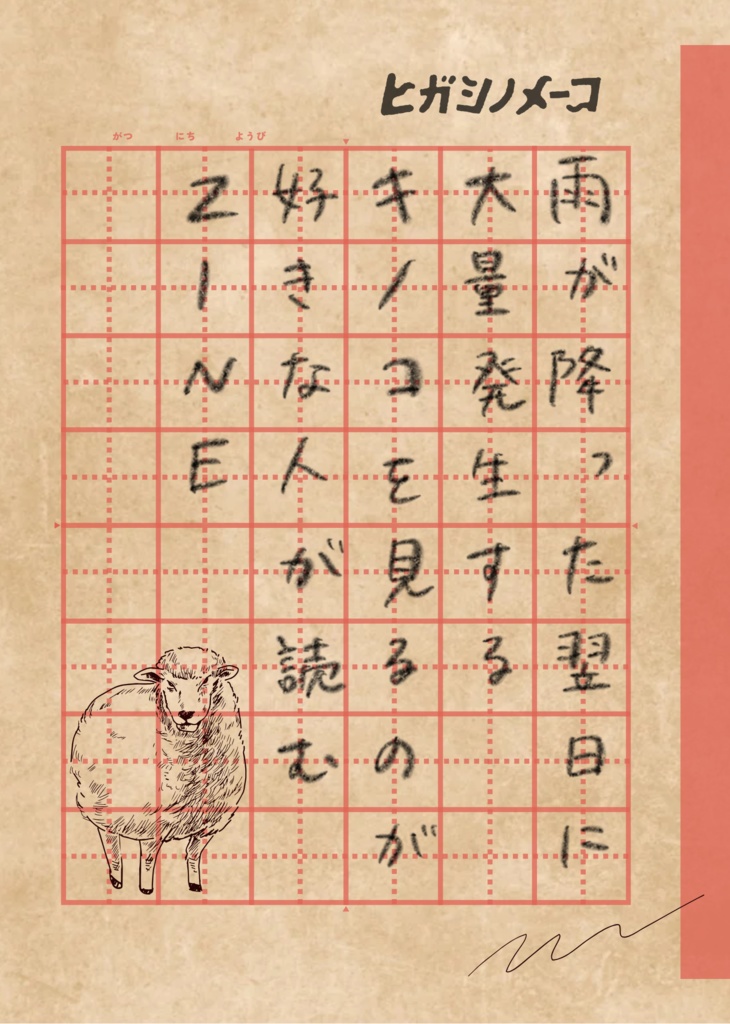 ヒガシノメーコ
がつ にち ようび
雨が降った翌日に
大量発生する
キノコを見るのが
好きな人が読む
ZINE